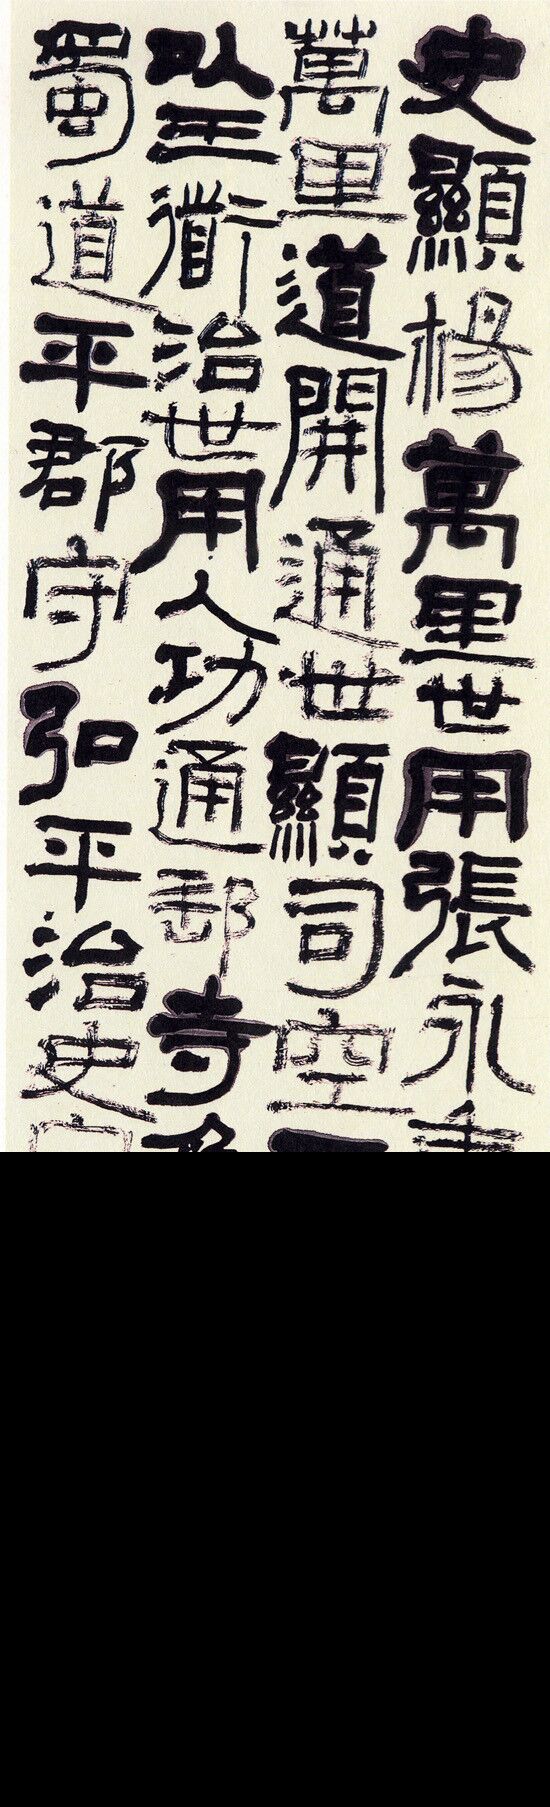 史顯楊萬里世用張永
萬里道開通世顯司空
以王衜治世用人功通郙寺
蜀道平郡守弘平治史